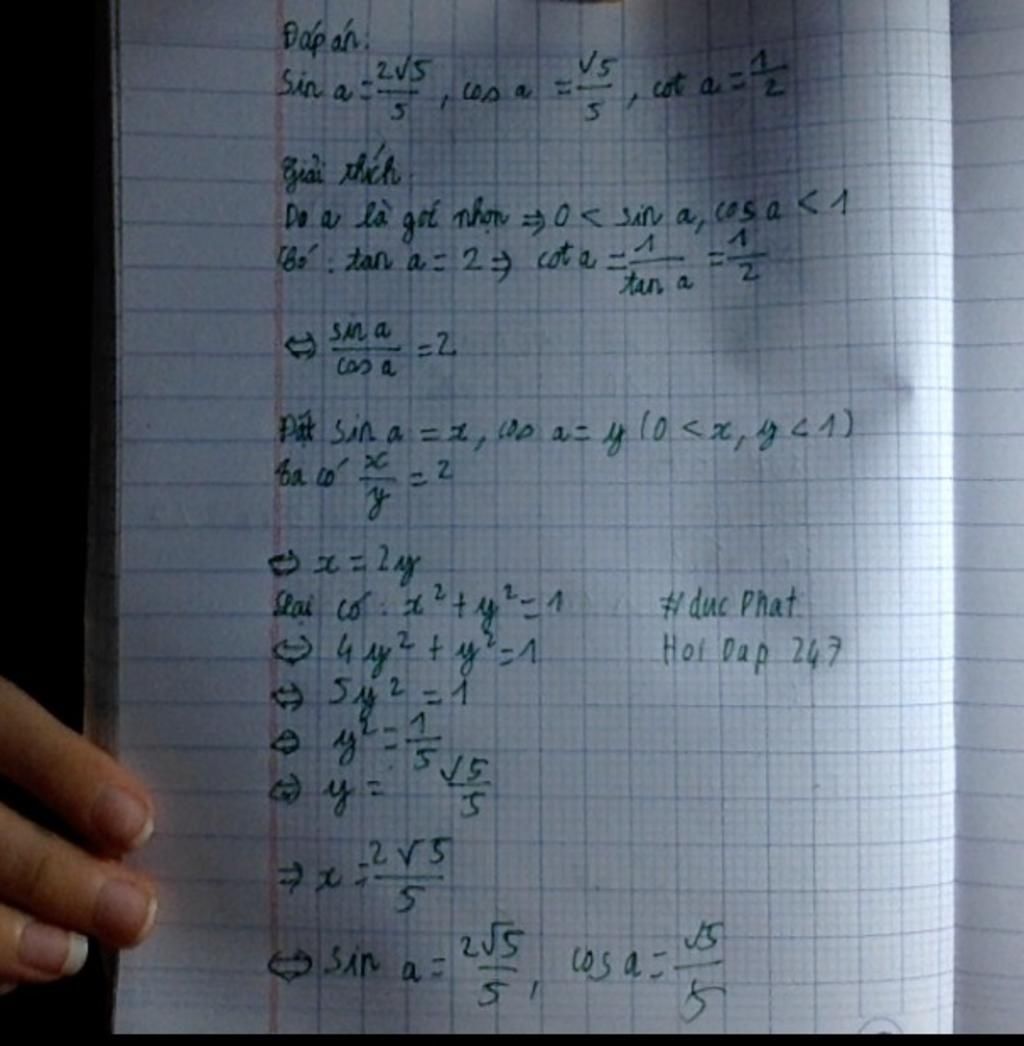 Đáp án:
Sin a = 2√5/5, cos a = √5/5, cot a = 1/2
Giải thích
Do a là góc nhọn => 0 < sin a, cos a < 1
Có: tan a = 2 => cot a = 1/tan a = 1/2
<=> sin a/cos a = 2
Đặt sin a = x, cos a = y (0 < x, y < 1)
Ta có x/y = 2
<=> x = 2y
Lại có: x² + y² = 1
#duc Phat
<=> 4y² + y² = 1
Hoi Dap 247
<=> 5y² = 1
<=> y² = 1/5
<=> y = √5/5
=> x = 2√5/5
<=> sin a = 2√5/5, cos a = √5/5